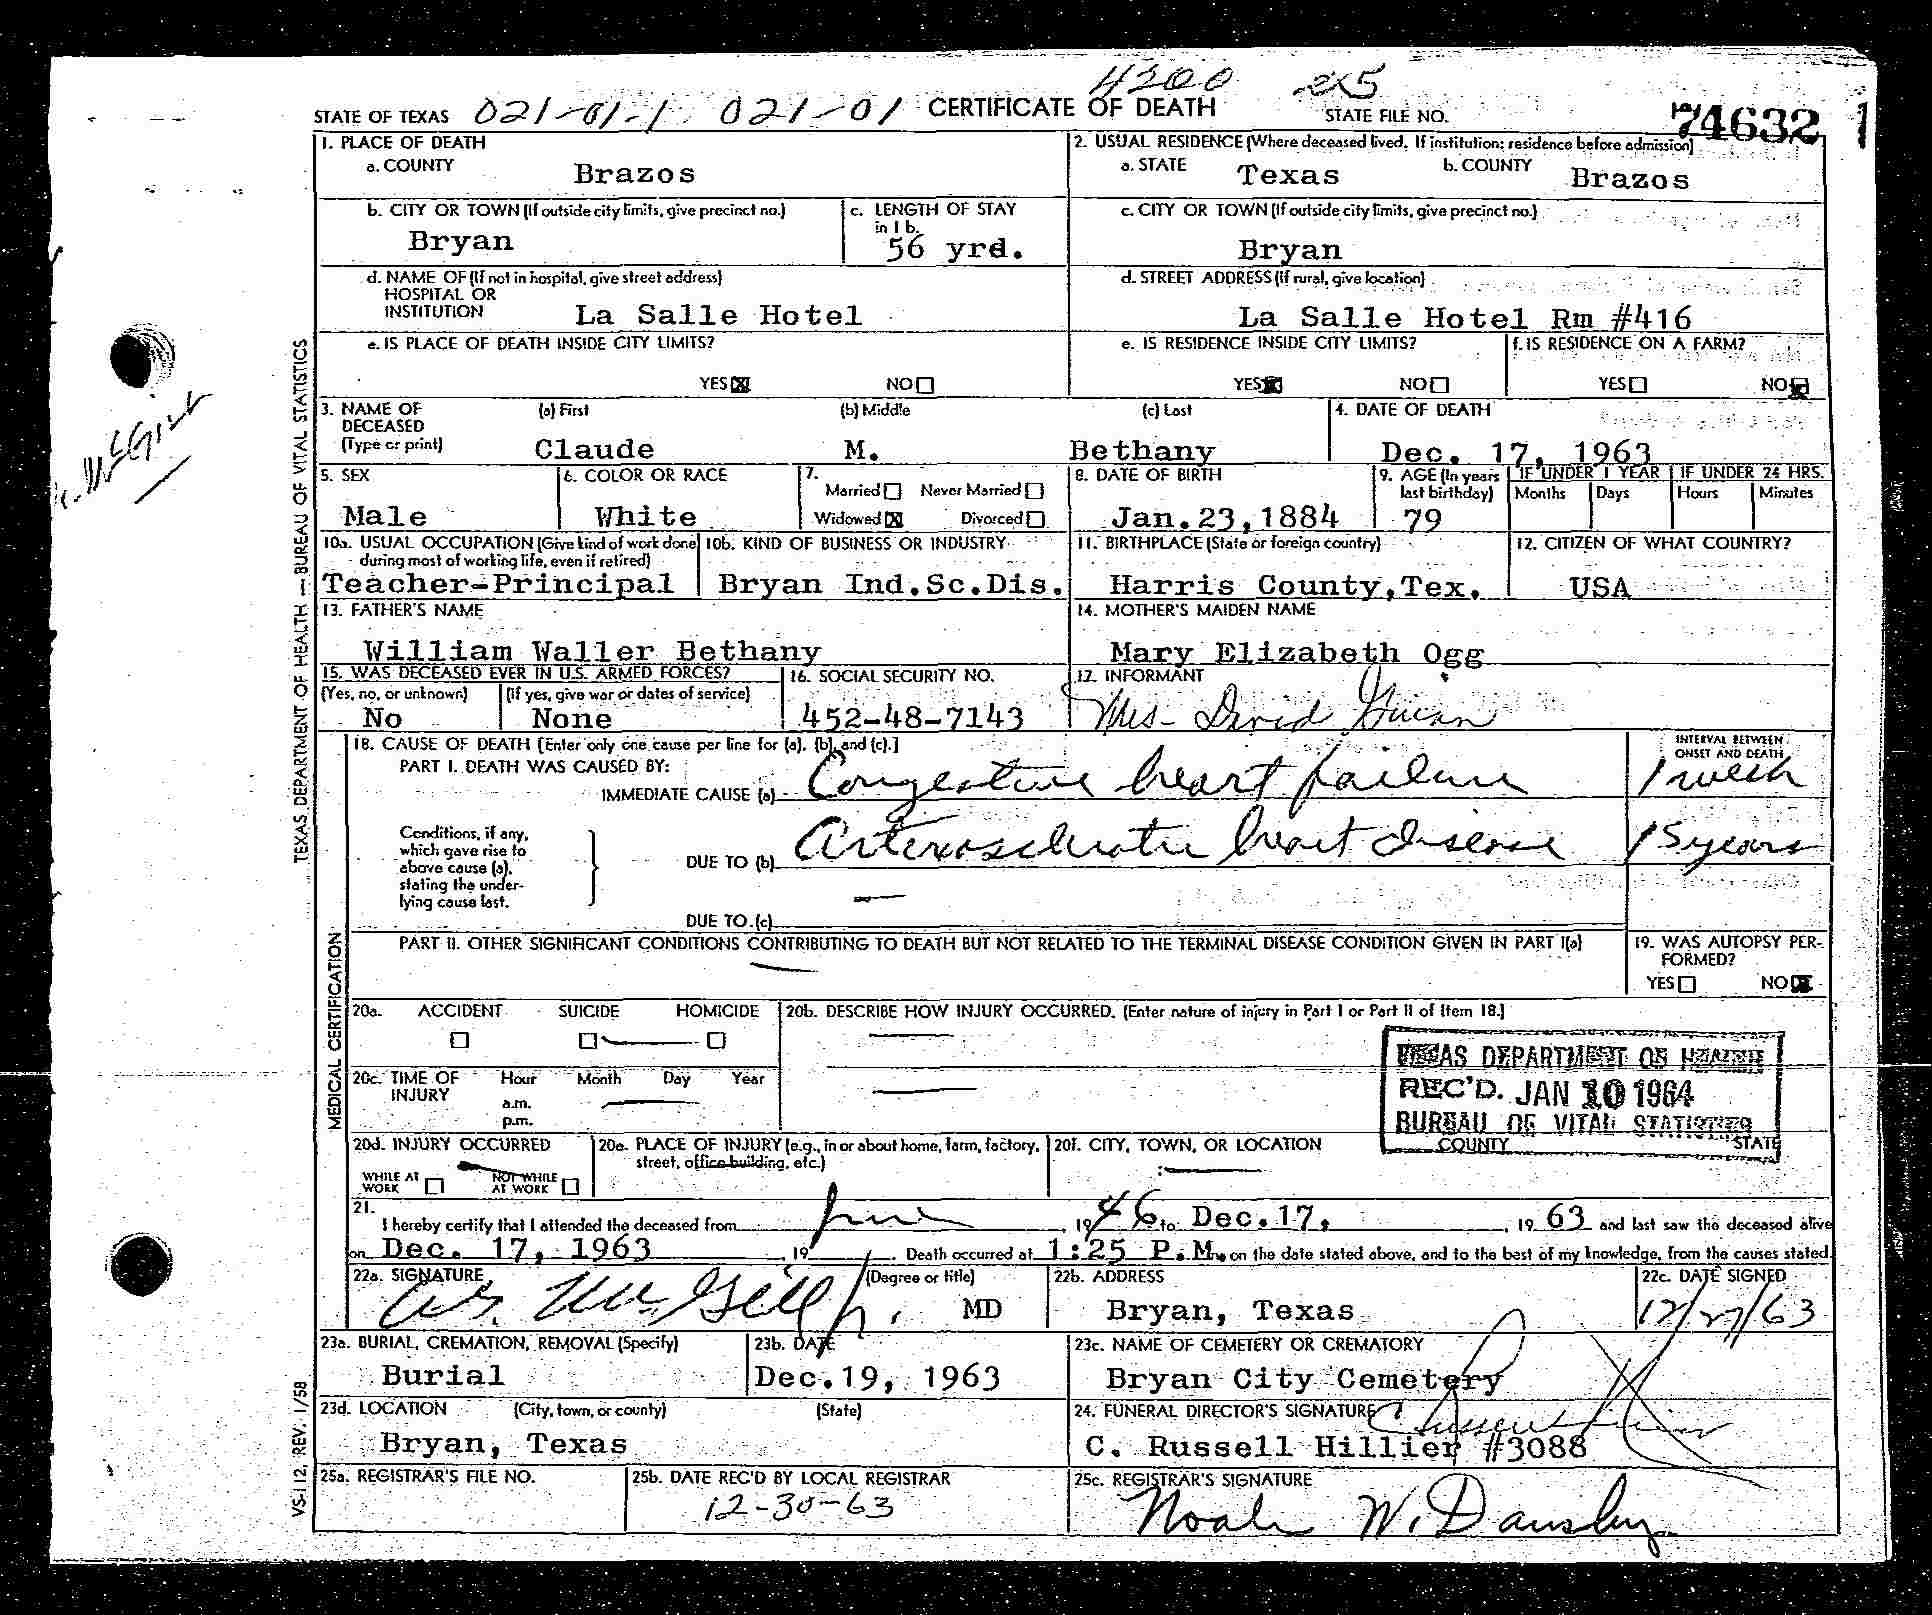 4200 215
STATE OF TEXAS 021-01-1 021-01 CERTIFICATE OF DEATH STATE FILE NO. 74632 1
1. PLACE OF DEATH
a. COUNTY Brazos
2. USUAL RESIDENCE (Where deceased lived. If institution: residence before admission)
a. STATE Texas b. COUNTY Brazos
b. CITY OR TOWN (If outside city limits, give precinct no.) Bryan
c. LENGTH OF STAY in 1 b. 56 yrd.
c. CITY OR TOWN (If outside city limits, give precinct no.) Bryan
d. NAME OF (If not in hospital, give street address)
HOSPITAL OR
INSTITUTION La Salle Hotel
d. STREET ADDRESS (If rural, give location)
La Salle Hotel Rm #416
e. IS PLACE OF DEATH INSIDE CITY LIMITS?
YES NO
e. IS RESIDENCE INSIDE CITY LIMITS?
YES NO
f. IS RESIDENCE ON A FARM?
YES NO
3. NAME OF DECEASED (Type or print)
(a) First (b) Middle (c) Last
Claude M. Bethany
4. DATE OF DEATH
Dec. 17, 1963
5. SEX
Male
6. COLOR OR RACE
White
7.
Married Never Married
Widowed Divorced
8. DATE OF BIRTH
Jan.23,1884
9. AGE (In years last birthday)
79
IF UNDER 1 YEAR
Months Days
IF UNDER 24 HRS.
Hours Minutes
10a. USUAL OCCUPATION (Give kind of work done during most of working life, even if retired)
Teacher-Principal
10b. KIND OF BUSINESS OR INDUSTRY
Bryan Ind.Sc.Dis.
11. BIRTHPLACE (State or foreign country)
Harris County,Tex.
12. CITIZEN OF WHAT COUNTRY?
USA
13. FATHER'S NAME
William Waller Bethany
14. MOTHER'S MAIDEN NAME
Mary Elizabeth Ogg
15. WAS DECEASED EVER IN U.S. ARMED FORCES?
(Yes, no, or unknown) (If yes, give war or dates of service)
No None
16. SOCIAL SECURITY NO.
452-48-7143
17. INFORMANT
Mrs- David
18. CAUSE OF DEATH [Enter only one cause per line for (a), (b), and (c).]
PART I. DEATH WAS CAUSED BY:
INTERVAL BETWEEN ONSET AND DEATH
IMMEDIATE CAUSE (a) Congestive heart failure 1 week
Conditions, if any,
which gave rise to
above cause (a),
stating the under-
lying cause last.
DUE TO (b) Arteriosclerotic heart disease 15 years
DUE TO (c)
PART II. OTHER SIGNIFICANT CONDITIONS CONTRIBUTING TO DEATH BUT NOT RELATED TO THE TERMINAL DISEASE CONDITION GIVEN IN PART I(a)
19. WAS AUTOPSY PER-
FORMED?
YES NO
20a. ACCIDENT SUICIDE HOMICIDE
20b. DESCRIBE HOW INJURY OCCURRED. (Enter nature of injury in Part I or Part II of Item 18.)
20c. TIME OF INJURY Hour Month Day Year
a.m.
p.m.
TEXAS DEPARTMENT OF HEALTH
REC'D. JAN 10 1964
BUREAU OF VITAL STATISTICS
20d. INJURY OCCURRED
WHILE AT WORK NOT WHILE AT WORK
20e. PLACE OF INJURY (e.g., in or about home, farm, factory, street, office building, etc.)
20f. CITY, TOWN, OR LOCATION COUNTY STATE
21.
I hereby certify that I attended the deceased from June, 1946 to Dec.17, 1963 and last saw the deceased alive
on Dec. 17, 1963, 19 . Death occurred at 1:25 P.M. on the date stated above, and to the best of my knowledge, from the causes stated.
22a. SIGNATURE (Degree or title)
McGill Jr. MD
22b. ADDRESS
Bryan, Texas
22c. DATE SIGNED
12/27/63
23a. BURIAL, CREMATION, REMOVAL (Specify)
Burial
23b. DATE
Dec.19, 1963
23c. NAME OF CEMETERY OR CREMATORY
Bryan City Cemetery
23d. LOCATION (City, town, or county) (State)
Bryan, Texas
24. FUNERAL DIRECTOR'S SIGNATURE C Russell Hillier
C. Russell Hillier #3088
25a. REGISTRAR'S FILE NO.
25b. DATE REC'D BY LOCAL REGISTRAR
12-30-63
25c. REGISTRAR'S SIGNATURE
Noah W. Dansby
TEXAS DEPARTMENT OF HEALTH — BUREAU OF VITAL STATISTICS
MEDICAL CERTIFICATION
VS-112, REV. 1/58